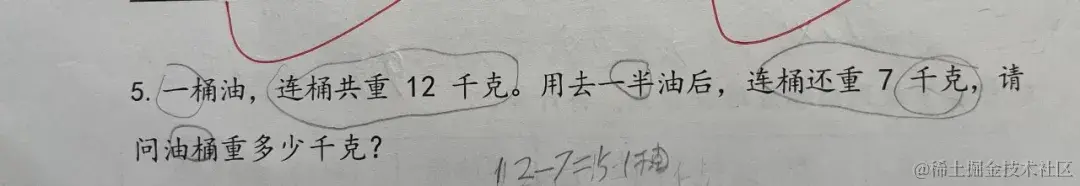 5. 一桶油，连桶共重 12 千克。用去一半油后，连桶还重 7 千克，请
问油桶重多少千克？
12-7=5
@稀土掘金技术社区